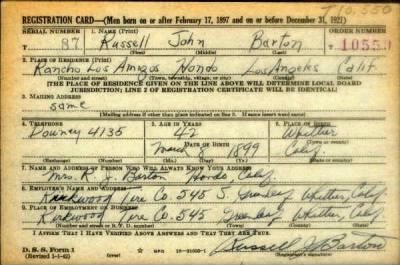 T10,550
REGISTRATION CARD—(Men born on or after February 17, 1897 and on or before December 31, 1921)
SERIAL NUMBER 1. NAME (Print) ORDER NUMBER
T 87 Russell John Barton T 10550
(First) (Middle) (Last)
2. PLACE OF RESIDENCE (Print)
Rancho Los Amigos Hondo Los Angeles Calif
(Number and street) (Town, township, village, or city) (County) (State)
[THE PLACE OF RESIDENCE GIVEN ON THE LINE ABOVE WILL DETERMINE LOCAL BOARD
JURISDICTION; LINE 2 OF REGISTRATION CERTIFICATE WILL BE IDENTICAL]
3. MAILING ADDRESS
same
[Mailing address if other than place indicated on line 2. If same insert word same]
4. TELEPHONE 5. AGE IN YEARS 6. PLACE OF BIRTH
Downey 4135 42 Whittier
DATE OF BIRTH
March 8 1899 Calif.
(Exchange) (Number) (Mo.) (Day) (Yr.) (State or country)
7. NAME AND ADDRESS OF PERSON WHO WILL ALWAYS KNOW YOUR ADDRESS
Mrs. R. J. Barton, Hondo, Calif
8. EMPLOYER'S NAME AND ADDRESS
Kirkwood Tire Co. 545 S. Greenleaf Whittier, Calif
9. PLACE OF EMPLOYMENT OR BUSINESS
Kirkwood Tire Co. 545 Greenleaf Whittier, Calif
(Number and street or R. F. D. number) (Town) (County) (State)
I AFFIRM THAT I HAVE VERIFIED ABOVE ANSWERS AND THAT THEY ARE TRUE.
D. S. S. Form 1
(Revised 1-1-42) Russell J Barton
(Registrant's signature)